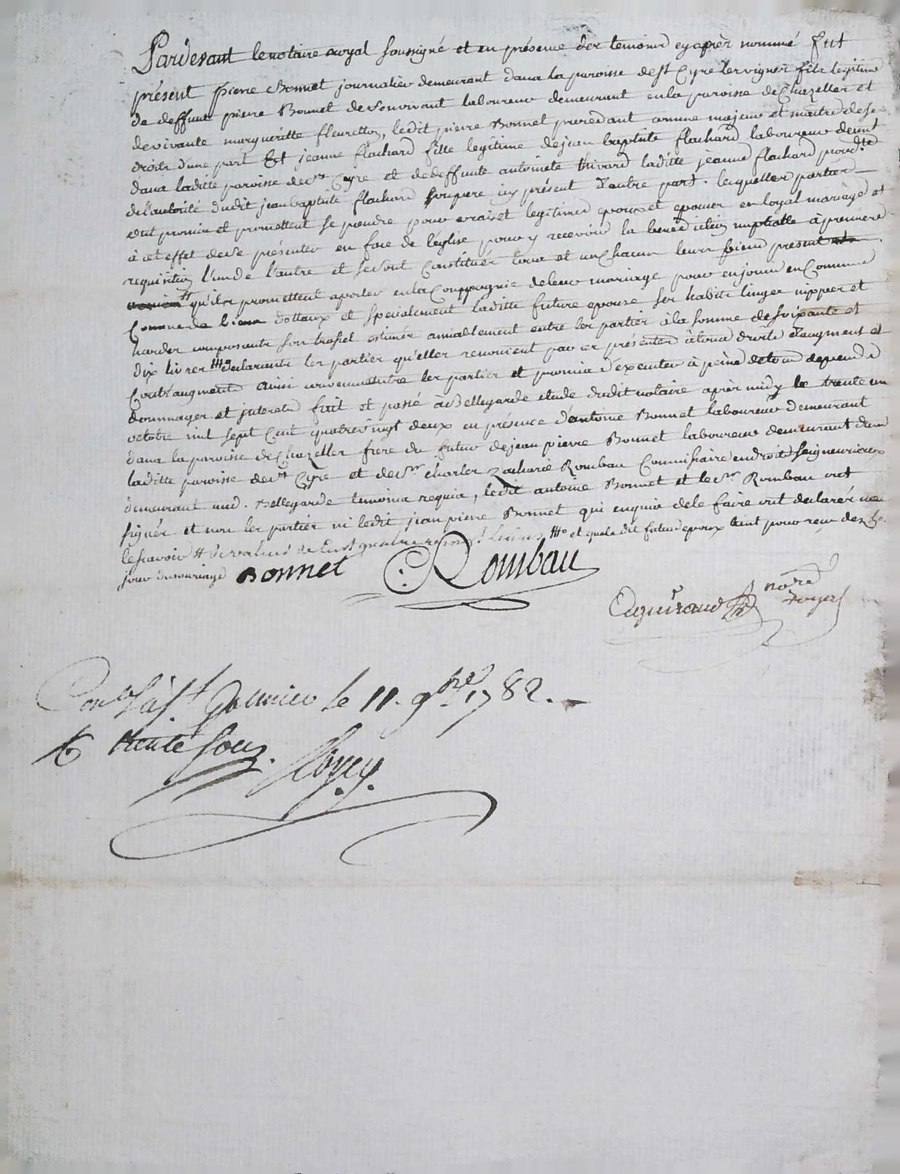 Pardevant le notaire royal soussigné et en présence des temoins cy après nommé fut
présent pierre Bonnet journalier demeurant dans la paroisse de st Cyre les vignes fils legitime
de deffunt pierre Bonnet de son vivant laboureur demeurant en la paroisse de Chazelles et
de vivante margueritte fleurette, ledit pierre Bonnet procedant comme majeur et maitre de ses
droits d'une part Et jeanne flachard fille legitime de jean baptiste flachard laboureur demt
dans laditte paroisse de st Cyre et de deffunte antoinette thivard laditte jeanne flachard procédte
de l'autorité dudit jean baptiste flachard son pere icy présent d'autre part. lesquelles parties
ont promis et promettent se prendre pour vrais et legitimes epoux et epouse en loyal mariage et
à cet effet de se présenter en face de l'église pour y recevoir la benediction nuptialle à premiere
requisition l'un de l'autre et se sont constitués tous et un chacun leurs biens present
qu'ils promettent aporter en la Compagnie de leur mariage pour en jouir en Comme
dottaux et specialement laditte future epouse ses habits linges nippes et
hardes composants son trossel estimés amiablement entre les parties à la somme de soixante et
dix livres declarants les parties qu'elles renoncent par ces présentes à tous droits d'augment et
Contraugment ainsi convenu entre les parties et promis d'executer à peine de tous depends
dommages et interets fait et passé à Bellegarde etude dudit notaire après midy le trente un
octobre mil sept cent quatre vingt deux en présence d'antoine Bonnet laboureur demeurant
dans la paroisse de Chazelles frere du futur de jean pierre Bonnet laboureur demeurant dans
laditte paroisse de st Cyre et de sr charles Zacharie Rombau Commissaire en droits seigneuriaux
demeurant aud. Bellegarde temoins requis, ledit antoine Bonnet et le sr Rombau ont
signés et non les parties ni ledit jean pierre Bonnet qui enquis de le faire ont declarés ne
le scavoir et que ledit futur epoux tient pour reçu dez le
jour du mariage Bonnet C: Rombau
nore
royal
Conlé à St Galmier le 11. 9bre 1782.
trente sous.